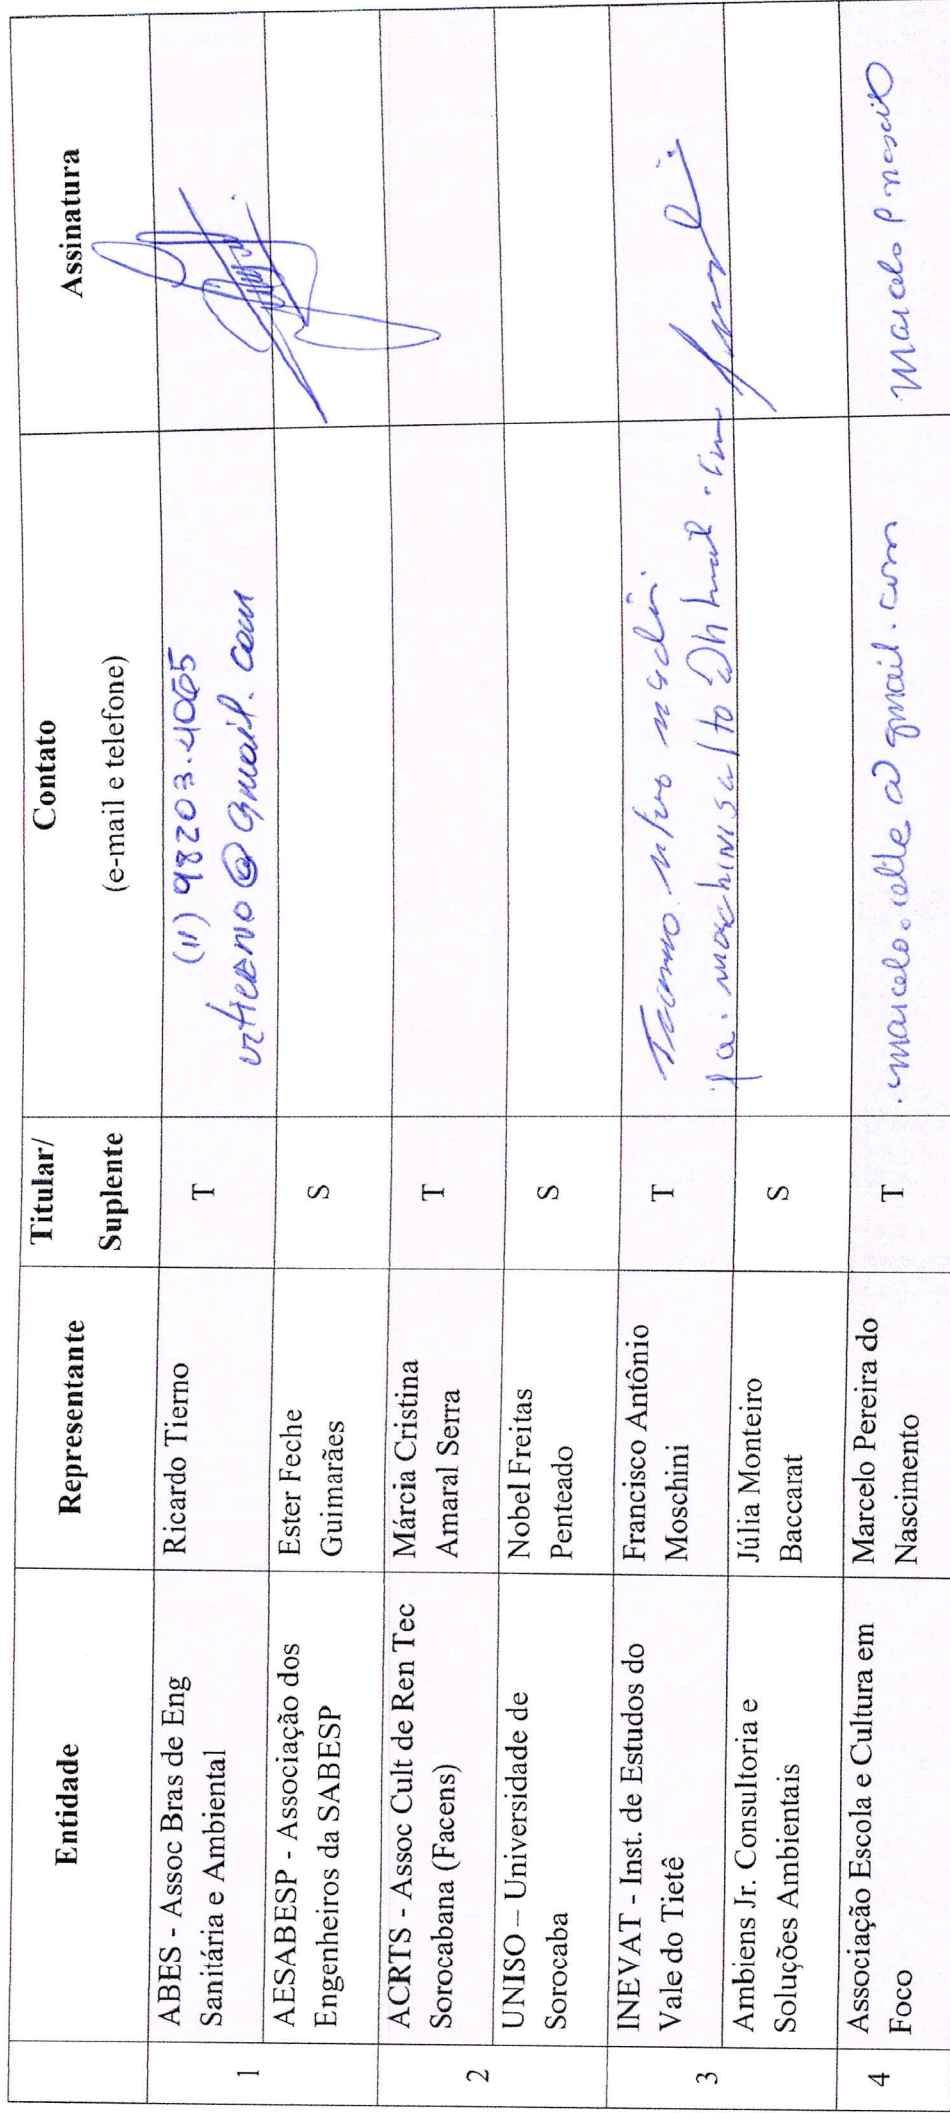 Entidade
Representante
Titular/
Suplente
Contato
(e-mail e telefone)
Assinatura
1
ABES - Assoc Bras de Eng
Sanitária e Ambiental
Ricardo Tierno
T
(11) 98203.4065
@gmail.com
AESABESP - Associação dos
Engenheiros da SABESP
Ester Feche
Guimarães
S
2
ACRTS - Assoc Cult de Ren Tec
Sorocabana (Facens)
Márcia Cristina
Amaral Serra
T
UNISO – Universidade de
Sorocaba
Nobel Freitas
Penteado
S
3
INEVAT - Inst. de Estudos do
Vale do Tietê
Francisco Antônio
Moschini
T
Ambiens Jr. Consultoria e
Soluções Ambientais
Júlia Monteiro
Baccarat
S
4
Associação Escola e Cultura em
Foco
Marcelo Pereira do
Nascimento
T
@gmail.com
Marcelo P